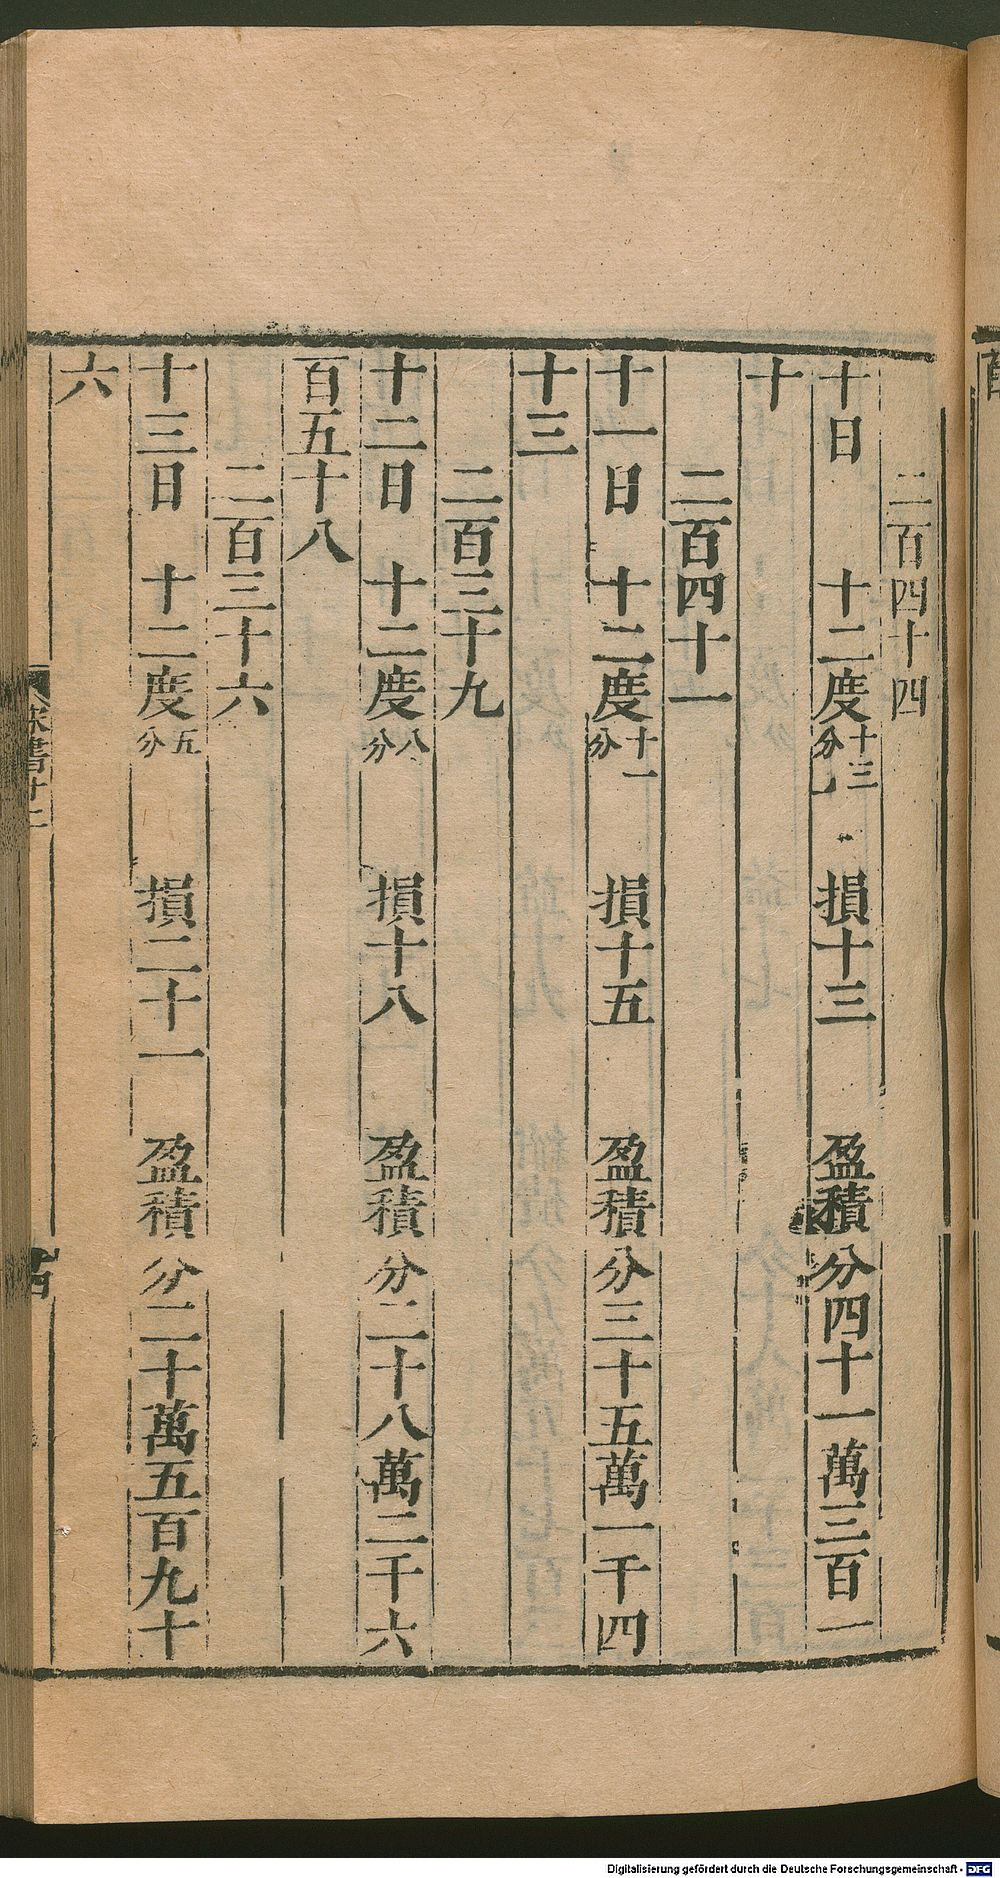 二百四十四
十日 十二度十三分 損十三 盈積分四十一萬三百一
十
二百四十一
十一日 十二度十一分 損十五 盈積分三十五萬一千四
十三
二百三十九
十二日 十二度八分 損十八 盈積分二十八萬二千六
百五十八
二百三十六
十三日 十二度五分 損二十一 盈積分二十萬五百九十
六
Digitalisierung gefördert durch die Deutsche Forschungsgemeinschaft - DFG